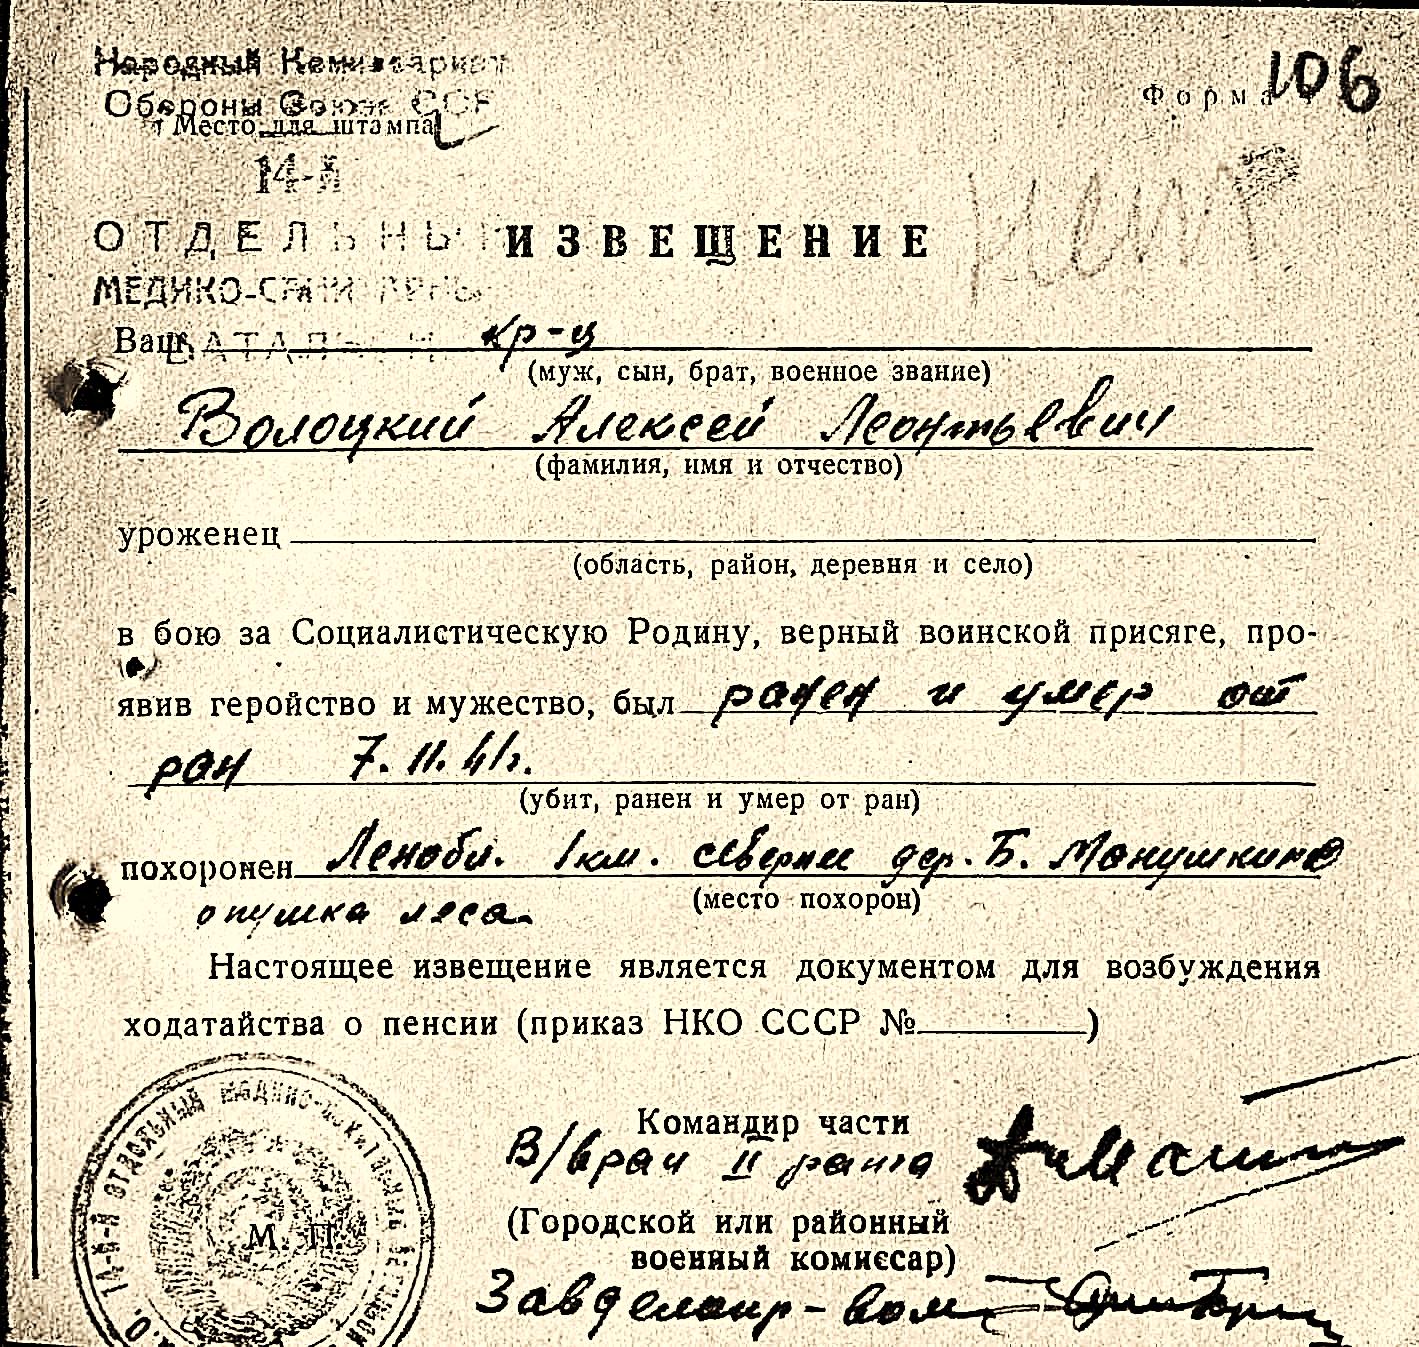 Народный Комиссариат
Обороны Союза ССР
Место для штампа
Форма
106
14-й
ОТДЕЛЬНЫЙ
ИЗВЕЩЕНИЕ
МЕДИКО-САНИТАРНЫЙ
БАТАЛЬОН
Ваш кр-ц
(муж, сын, брат, военное звание)
Волоцкий Алексей Леонтьевич
(фамилия, имя и отчество)
уроженец
(область, район, деревня и село)
в бою за Социалистическую Родину, верный воинской присяге, про-
явив геройство и мужество, был ранен и умер от
ран 7.11.41г.
(убит, ранен и умер от ран)
похоронен Ленобл. 1 км. севернее дер. Б. Манушкино
(место похорон)
опушка леса
Настоящее извещение является документом для возбуждения
ходатайства о пенсии (приказ НКО СССР №)
Командир части
В/врач II ранга
(Городской или районный
военный комиссар)
Завделопр-вом
14-Й ОТДЕЛЬНЫЙ МЕДИКО-САНИТАРНЫЙ БАТАЛЬОН
М. П.